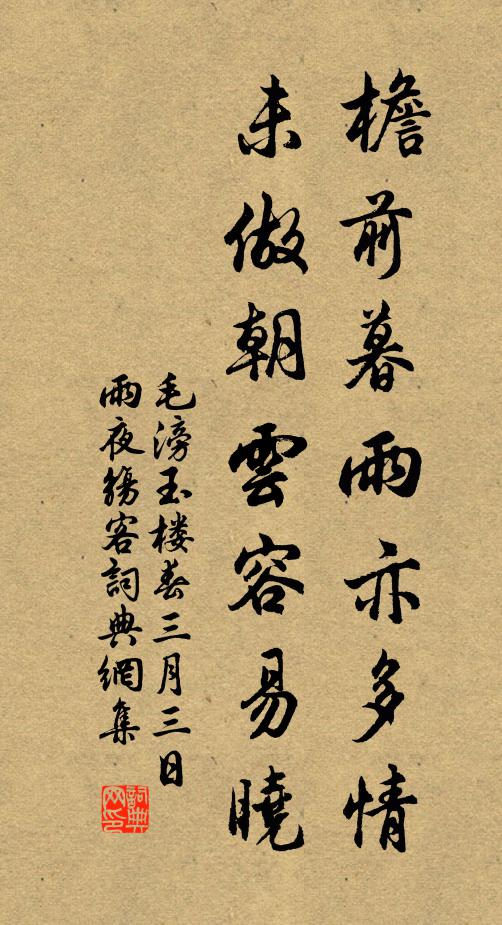 檐前暮雨亦多情
未做朝雲容易曉
毛滂玉楼春三月三日
雨夜觴客詞典網集
詞典網印